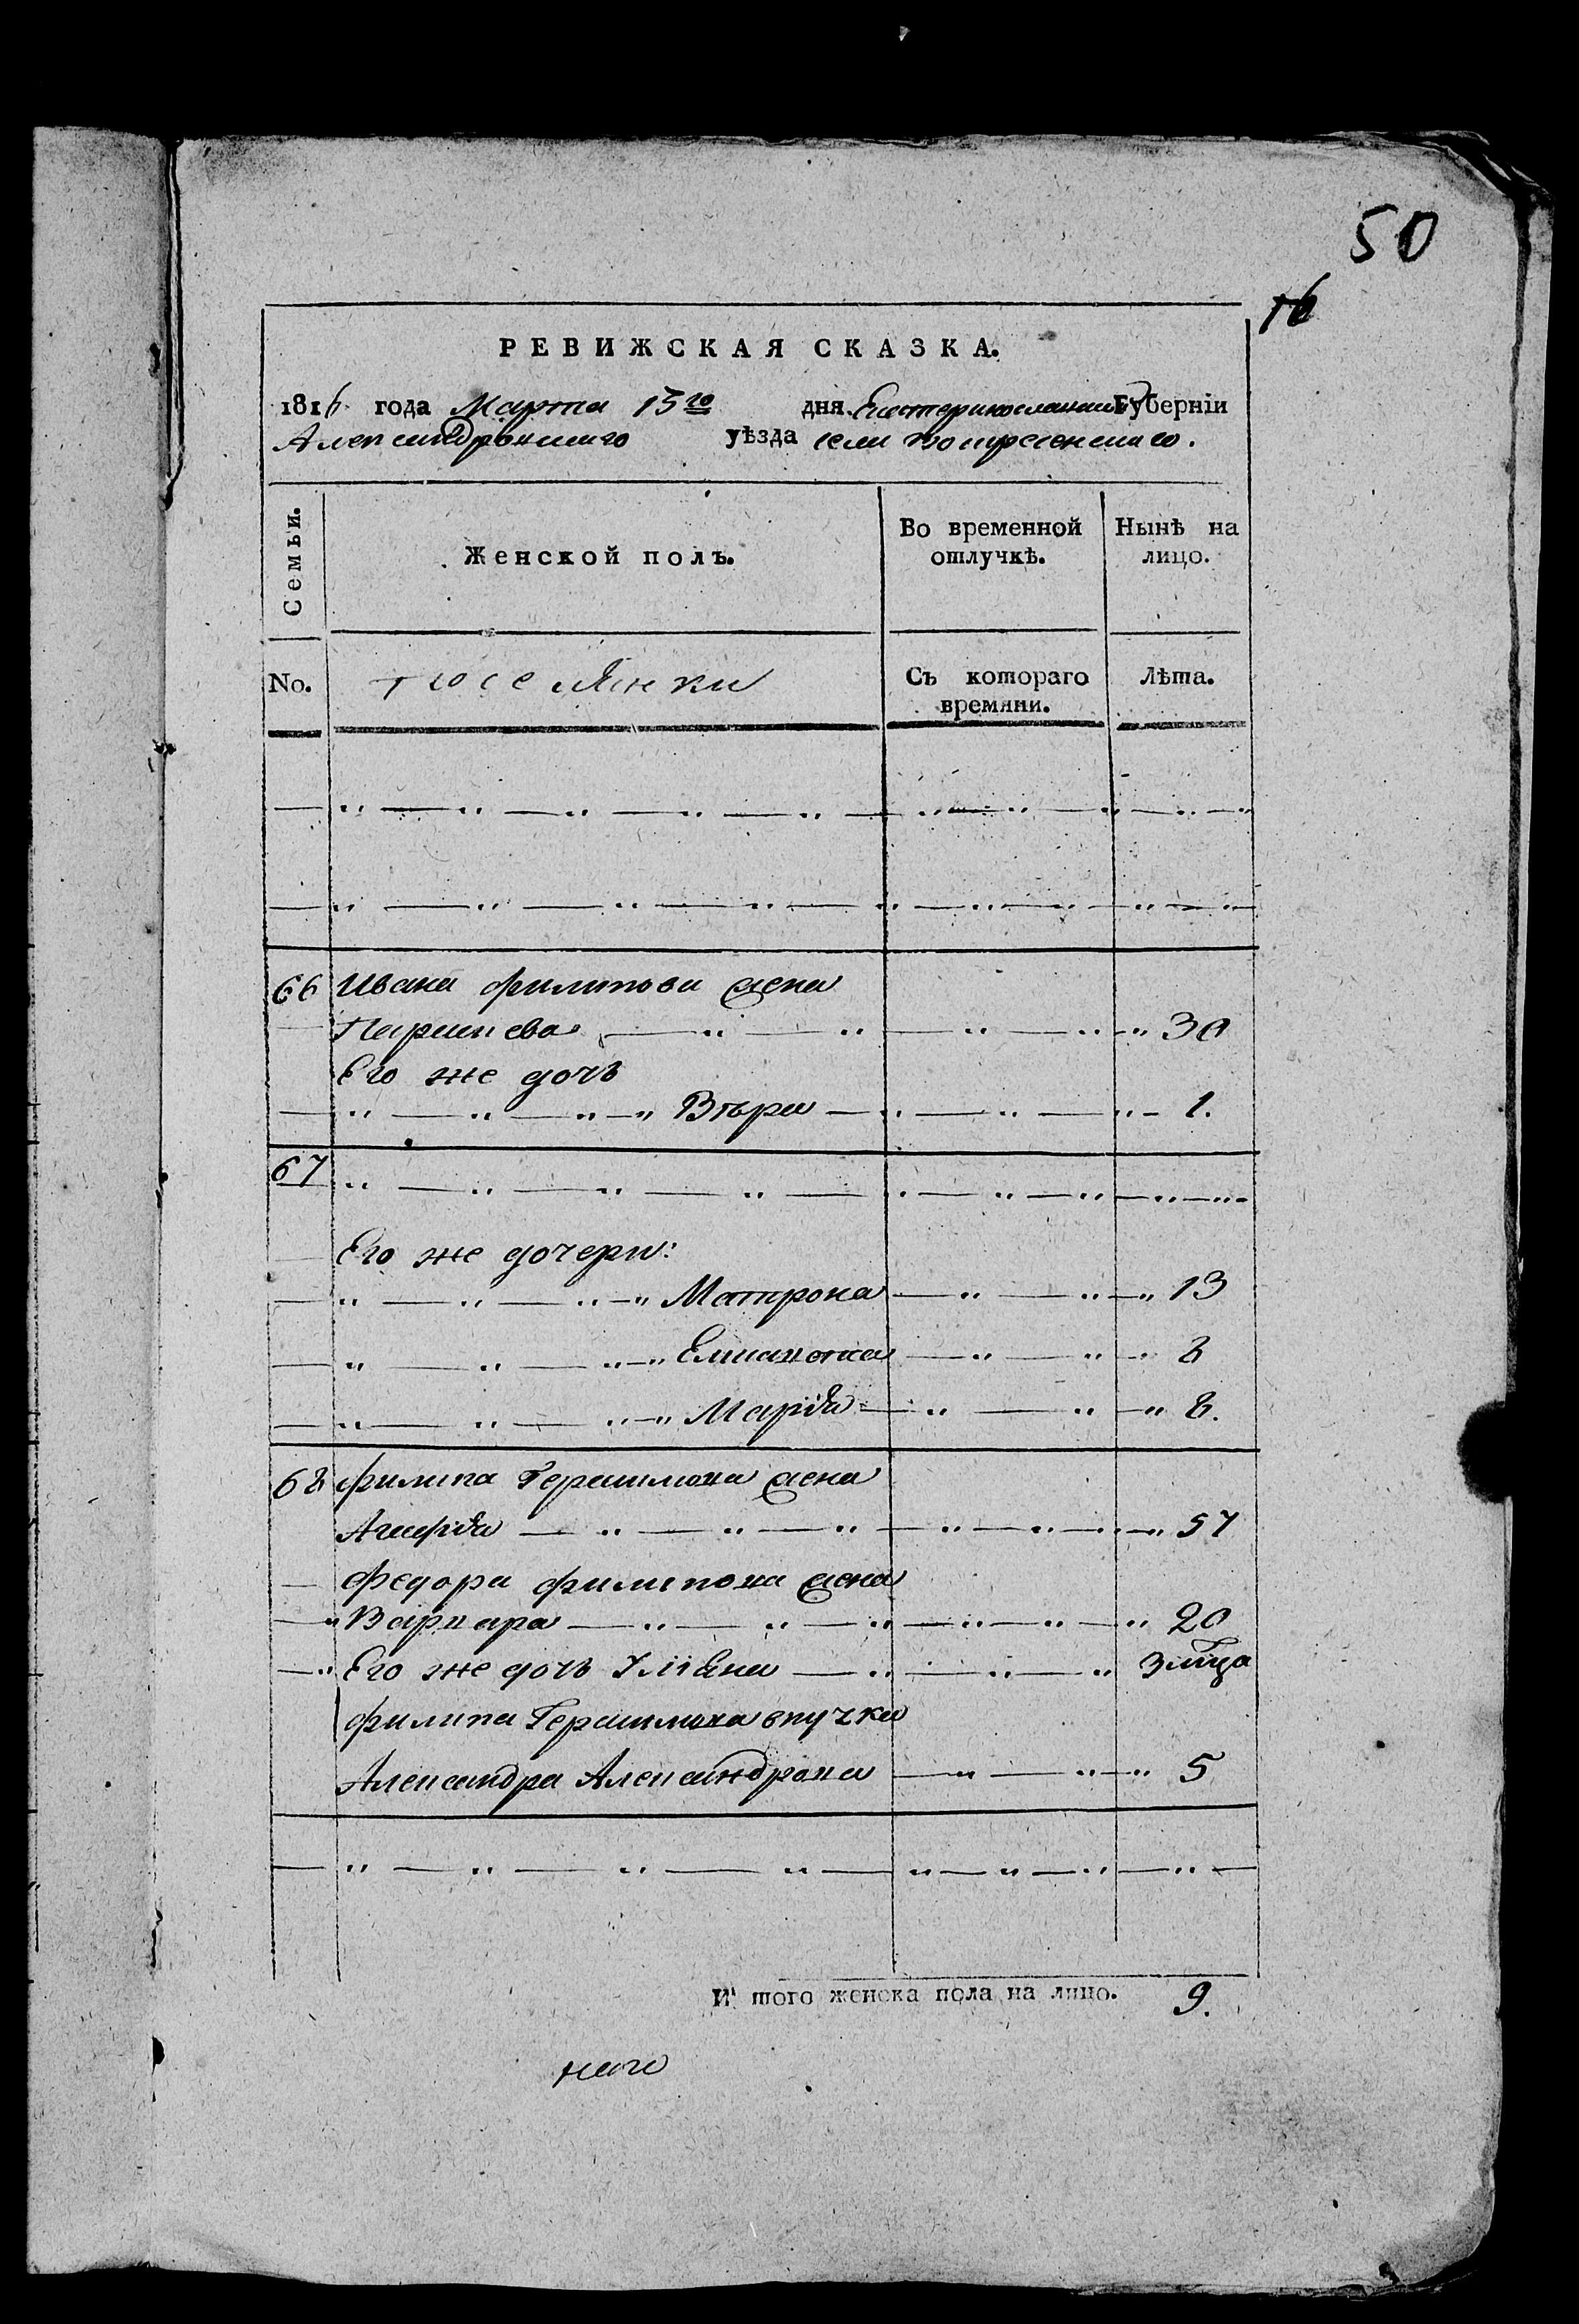 50
16
РЕВИЖСКАЯ СКАЗКА.
1816 года Марта 15го дня Екатеринославской Губерніи
Александровскаго уѣзда села Воскресенскаго.
Семьи.
Женской полъ.
Во временной отлучкѣ.
Нынѣ на лицо.
No.
поселянки
Съ котораго времяни.
Лѣта.
66 Ивана Филипова жена
Параскева 30
Его же дочь
Вѣра 1.
67
Его же дочери:
Матрона 13
8
Марія 8.
68 Филипа Герасимова жена
Агафія 57
Федора Филипова жена
Варвара 20
Его же дочь Уліяна 3 мца
Филипа Герасимова внучка
Александра Александрова 5
И того женска пола на лицо. 9.